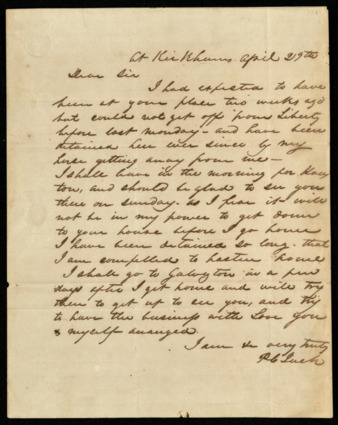 At Kirkhams April 29th
Dear Sir
I had expected to have
been at your place two weeks ago
but could not get off from Liberty
before last monday - and have been
detained here ever since by my
horse getting away from me -
I shall leave in the morning for
ton, and should be glad to see you
there on sunday. as I fear it will
not be in my power to get down
to your house before I go home
I have been detained so long. that
I am compelled to hasten home
I shall go to Galveston in a few
days after I get home and will try
then to get up to see you, and try
to have the business with Love you
& myself arranged.
I am &c very truly
P C Jack